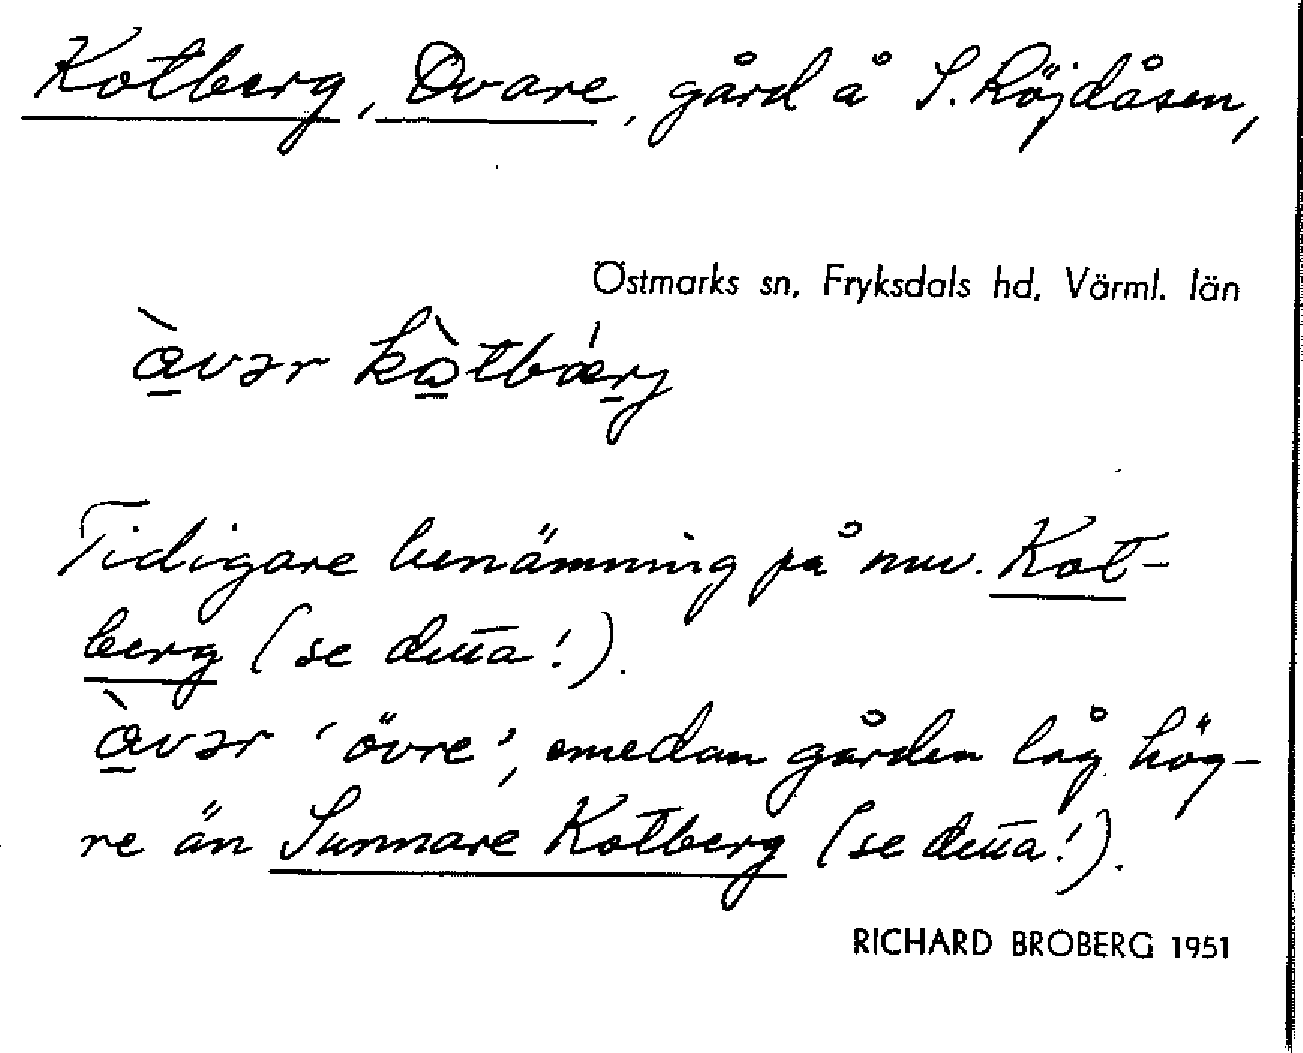 Kotberg, Ovare, gård å S. Röjdåsen,
Östmarks sn, Fryksdals hd, Värml. län
àvər kàtbǽrj
Tidigare benämning på nuv. Kot-
berg (se detta!).
àvər 'övre', emedan gården låg hög-
re än Sunnare Kotberg (se detta!).
RICHARD BROBERG 1951